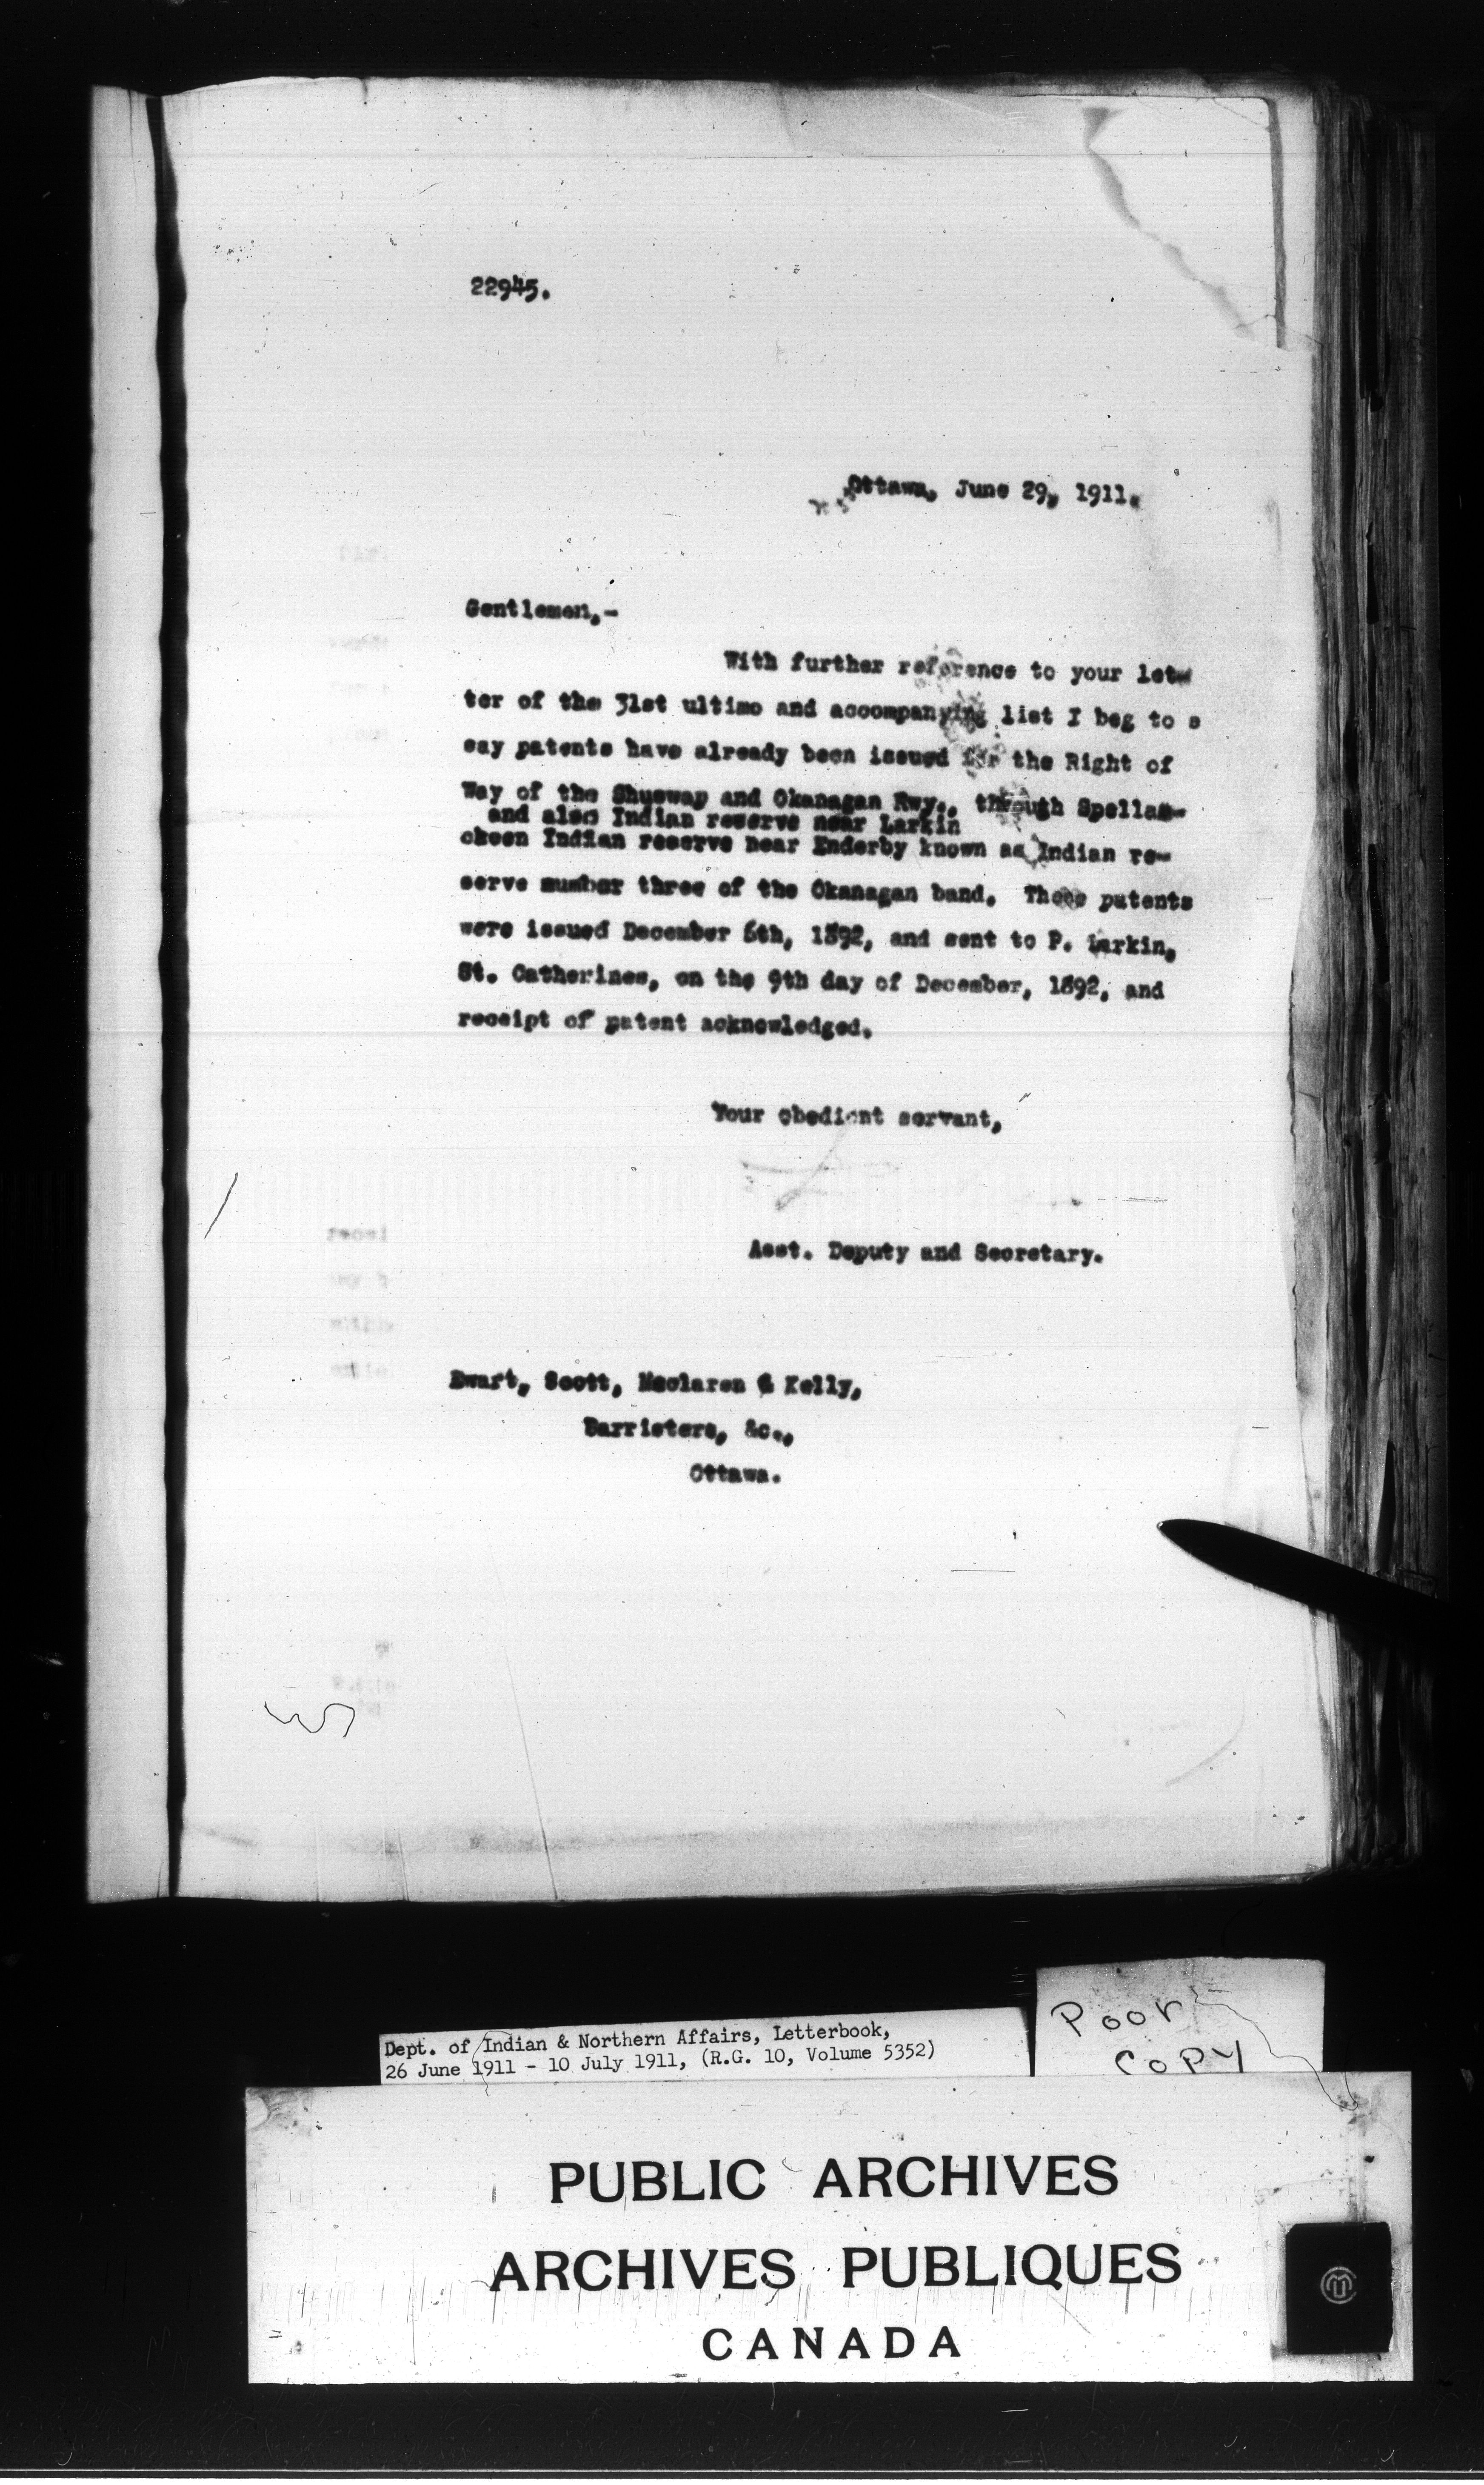 22945.
Ottawa, June 29, 1911.
Gentlemen,-
With further reference to your let-
ter of the 31st ultimo and accompanying list I beg to s
say patents have already been issued for the Right of
Way of the Shuswap and Okanagan Rwy., through Spellam-
and also Indian reserve near Larkin
cheen Indian reserve near Enderby known as Indian re-
serve number three of the Okanagan band. These patents
were issued December 6th, 1892, and sent to P. Larkin,
St. Catherines, on the 9th day of December, 1892, and
receipt of patent acknowledged.
Your obedient servant,
Asst. Deputy and Secretary.
Ewart, Scott, Maclaren & Kelly,
Barristers, &c.,
Ottawa.
Dept. of Indian & Northern Affairs, Letterbook,
26 June 1911 - 10 July 1911, (R.G. 10, Volume 5352)
Poor
Copy
PUBLIC ARCHIVES
ARCHIVES PUBLIQUES
CANADA